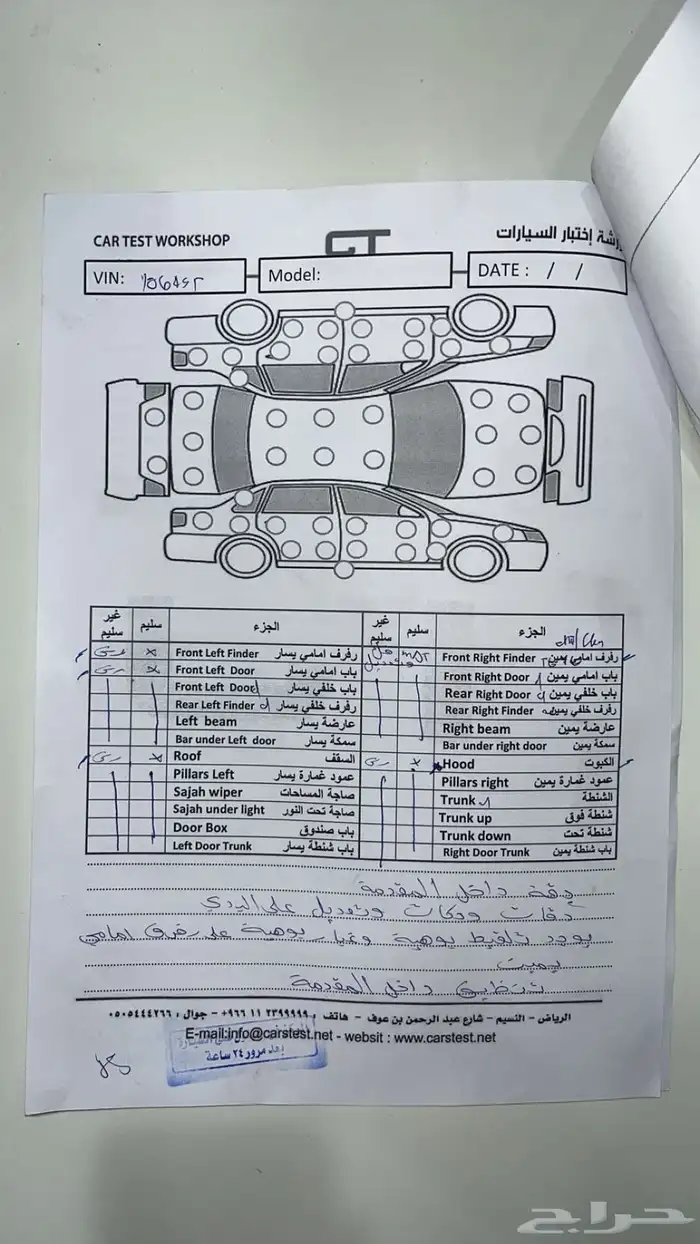 CAR TEST WORKSHOP
شة إختبار السيارات
VIN:
Model:
DATE : / /
غير سليم سليم الجزء غير سليم سليم الجزء
رش × Front Left Finder رفرف امامي يسار Front Right Finder رفرف امامي يمين
رش × Front Left Door باب امامي يسار Front Right Door باب امامي يمين
Front Left Door باب خلفي يسار Rear Right Door باب خلفي يمين
Rear Left Finder رفرف خلفي يسار Rear Right Finder رفرف خلفي يمين
Left beam عارضة يسار Right beam عارضة يمين
Bar under Left door سمكة يسار Bar under right door سمكة يمين
رش × Roof السقف رش × Hood الكبوت
Pillars Left عمود غمارة يسار Pillars right عمود غمارة يمين
Sajah wiper صاجة المساحات Trunk الشنطة
Sajah under light صاجة تحت النور Trunk up شنطة فوق
Door Box باب صندوق Trunk down شنطة تحت
Left Door Trunk باب شنطة يسار Right Door Trunk باب شنطة يمين
دقة داخل المقدمة
دقات وحكات وتعديل على البدي
يوجد تلقيط بوهية وغبار بوهية على رفرف امامي
يمين
تنظيف داخل المقدمة
الرياض - النسيم - شارع عبد الرحمن بن عوف - هاتف : ٢٣٩٩٩٩٩ ١١ ٩٦٦+ - جوال : ٠٥٠٥٤٤٤٢٦٦
E-mail:info@carstest.net - websit : www.carstest.net
بعد مرور ٢٤ ساعة
حراج